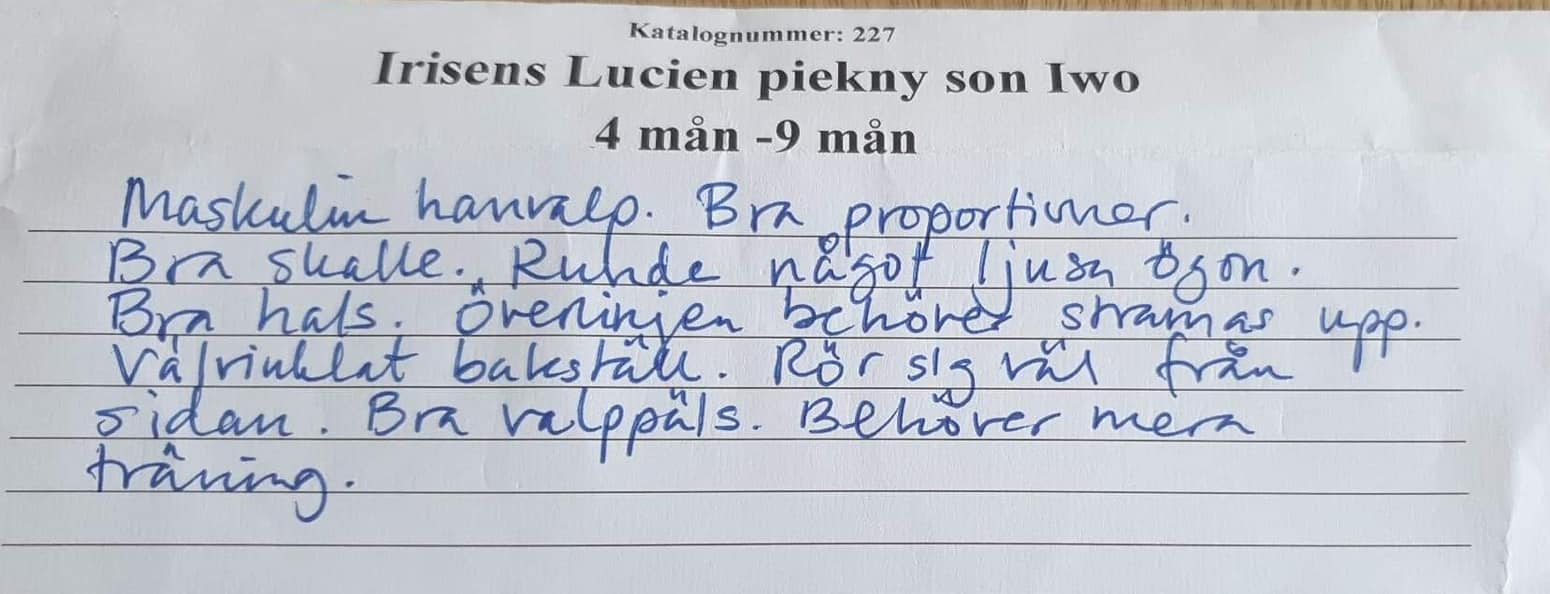 Katalognummer: 227
Irisens Lucien piekny son Iwo
4 mån -9 mån
Maskulin hanvalp. Bra proportioner.
Bra skalle. Runde något ljusa ögon.
Bra hals. Överlinjen behöver stramas upp.
Välvinklat bakställ. Rör sig väl från
sidan. Bra valppäls. Behöver mera
träning.